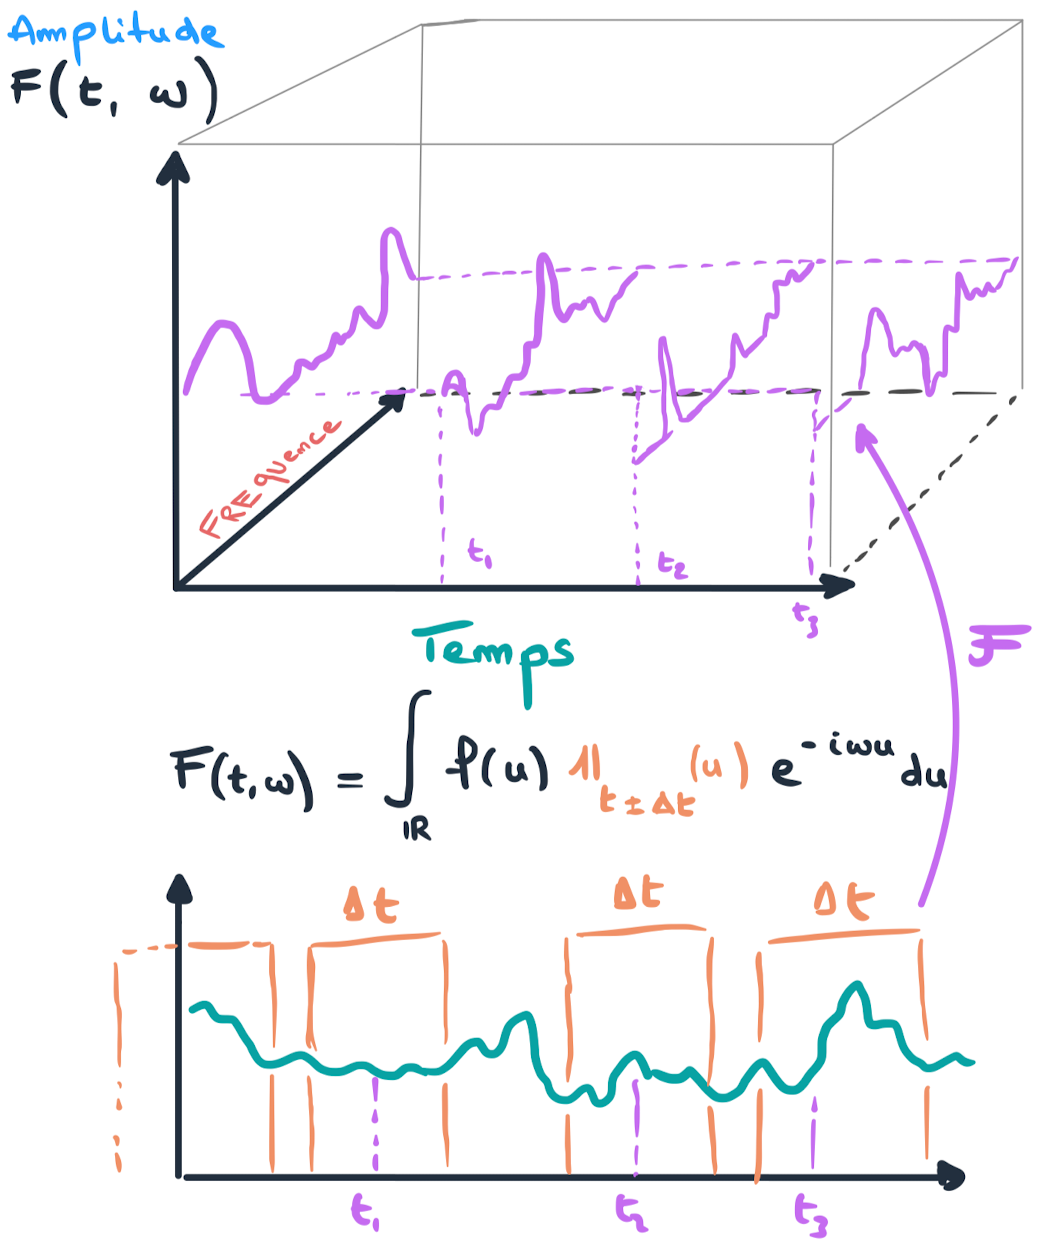 Amplitude
F(t, ω)
FREquence
t₁
t₂
t₃
Temps
ℱ
F(t,ω) = ∫_ℝ f(u) 𝟙_{t ± Δt}(u) e^{-iωu} du
Δt Δt Δt
t₁ t₂ t₃